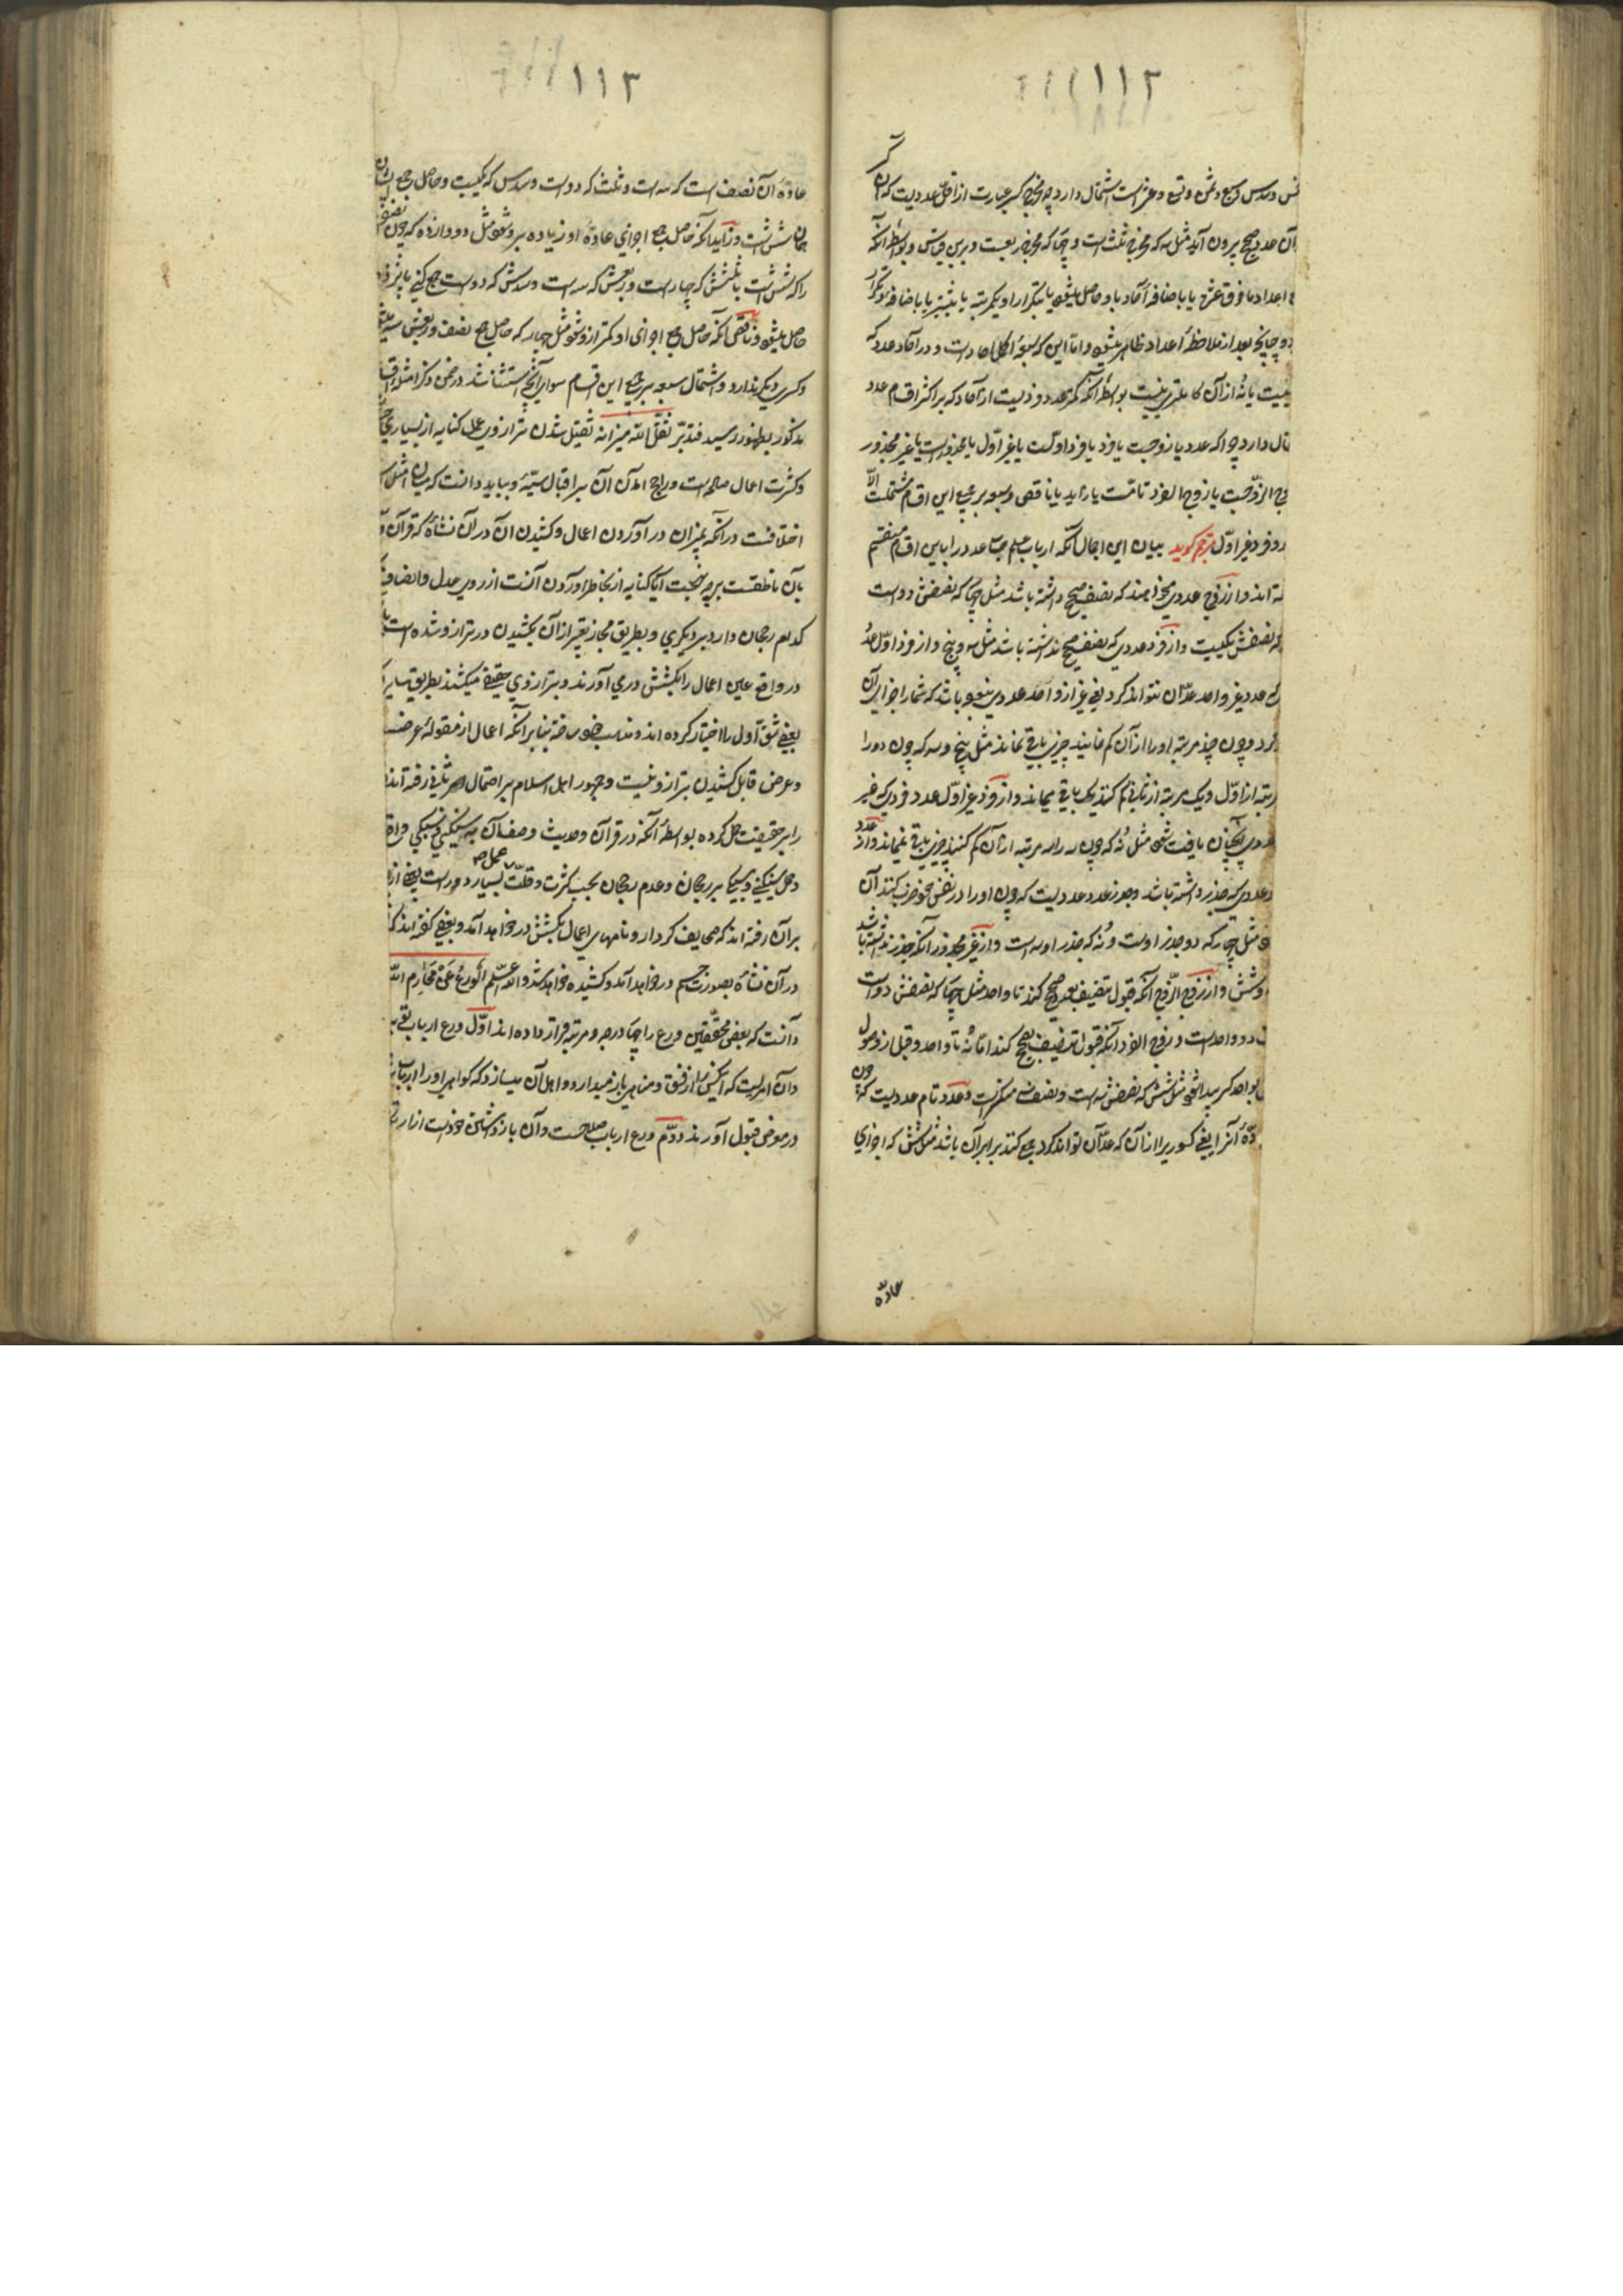 ۱۱۲
وسدس وسبع وثمن وتسع وعشر است اشتمال دارد چه مخرج کسر عبارت از اقل عددیست که آن کسر
از آن عدد صحیح بیرون آید مثل سه که مخرج ثلث است و چهار که مخرج ربعست و برین قیاس و بواسطهٔ آنکه
اعداد مافوق عشره یا باضافهٔ آحاد با و حاصل میشود یا بتکرار او یکمرتبه یا بیشتر یا باضافه و تکرار
چنانچه بعد از ملاحظهٔ اعداد ظاهر میشود و اما این که سبعه اکمل آحادست و در آحاد عدد که
نیست یا نه از آن کاملتری نیست بواسطهٔ آنکه کمتر عدد و ذلیست از آحاد که بر اکثر اقسام عدد
دارد چرا که عدد یا زوجست یا فرد یا فرد اولست یا غیر اول یا مجذورست یا غیر مجذور
الزوجست یا زوج الفرد تامست یا زاید یا ناقص و سبعه بر جمیع این اقسام مشتملست الا
و فرد غیر اول مترجم گوید بیان این اجمال آنکه ارباب علم حساب عدد را باین اقسام منقسم
اند و از زوج عددی میخواهند که نصف صحیح داشته باشد مثل چهار که نصفش دو است
نصفش یکیست و از فرد عددی که نصف صحیح نداشته باشد مثل سه و پنج و از فرد اول عددی
که عدد غیر واحد عد آن نتواند کرد یعنی غیر از واحد عددی نبوده باشد که شمار اجزای آن
کرد و چون چند مرتبه او را از آن کم نمایند چیزی باقی نماند مثل پنج و سه که چون دو را
مرتبه از اول و یک مرتبه از ثانی کم کنند یک باقی میماند و از فرد غیر اول عدد فردی که غیر
عددی آنچنان یافت شود مثل نه که چون سه را سه مرتبه از آن کم کنند چیزی باقی نماند و از عدد
عددی که جذر داشته باشد و جذر عدد عددیست که چون او را در نفس خود ضرب کنند آن
مثل چهار که دو جذر اوست و نه که جذر او سه است و از غیر مجذور آنکه جذر نداشته باشد
وشش و از زوج الزوج آنکه قبول تنصیف بعدد صحیح کند تا واحد مثل چهار که نصفش دو است
دو واحدست و زوج الفرد آنکه قبول تنصیف صحیح کند اما نه تا واحد و قبل از وصول
بواحد کسر پیدا شود مثل شش که نصفش سه است و نصف سه منکسرست و عدد تام عددیست که چون
آنرا یعنی کسوری را از آن که عد آن تواند کرد جمع کنند برابر آن باشد مثل شش که اجزای
عادّه
۱۱۳
عادّهٔ آن نصف است که سه است و ثلث که دو است و سدس که یکیست و حاصل جمع ایشان
همان شش است و زاید آنکه حاصل جمع اجزای عادّهٔ او زیاده برو شود مثل دوازده که چون نصفش
را که شش است با ثلثش که چهار است و ربعش که سه است و سدسش که دو است جمع کنی پانزده
حاصل میشود و ناقص آنکه حاصل جمع اجزای او کمتر ازو شود مثل چهار که حاصل جمع نصف و ربعش سه میشود
و کسر دیگر ندارد و اشتمال سبعه بر جمیع این اقسام سوای آنچه استثنا شد در ضمن ذکر امثلهٔ اقسام
مذکور بظهور رسید فتدبر ثقل الله میزانه ثقیل شدن ترازوی عمل کنایه از بسیاری خیر
و کثرت اعمال صالحه است و راجح آمدن آن بر افعال سیئه و بباید دانست که میان اهل اسلام
اختلافست در آنکه بمیزان در آوردن اعمال و کشیدن آن در آن نشأه که قرآن
بآن ناطقست بر چه نحوست آیا کنایه از بخاطر آوردن آنست از روی عدل و انصاف
کدام رجحان دارد بر دیگری و بطریق مجاز تعبیر از آن بکشیدن در ترازو شده است یا
در واقع عین اعمال را بکشش در می آورند و بترازوی حقیقی میکشند بطریق سایر
بعضی شق اول را اختیار کرده اند و مناسب خود ساخته بنا بر آنکه اعمال از مقولهٔ عرضست
و عرض قابل کشیدن بترازو نیست و جمهور اهل اسلام بر احتمال ثانی رفته اند
را بر حقیقت حمل کرده بواسطهٔ آنکه در قرآن و حدیث وصف آن به سنگینی و سبکی واقع
و حمل سنگینی و سبکی بر رجحان و عدم رجحان بحسب کثرت و قلت عمل بسیار دورست بعضی از
بر آن رفته اند که صحایف کردار و نامهای اعمال بکشش در خواهد آمد و بعضی گفته اند که
در آن نشأه بصورت جسم در خواهد آمد و کشیده خواهد شد والله اعلم الورع عن محارم الله
دانست که بعضی محققین ورع را چهار درجه و مرتبه قرار داده اند اول ورع ارباب
و آن امریست که آدمی را از فسق و مناهی باز میدارد و اهل آن میسازد که گواهی او را ارباب
در موضع قبول آورند دوم ورع ارباب صلاحست و آن باز داشتن خودست از